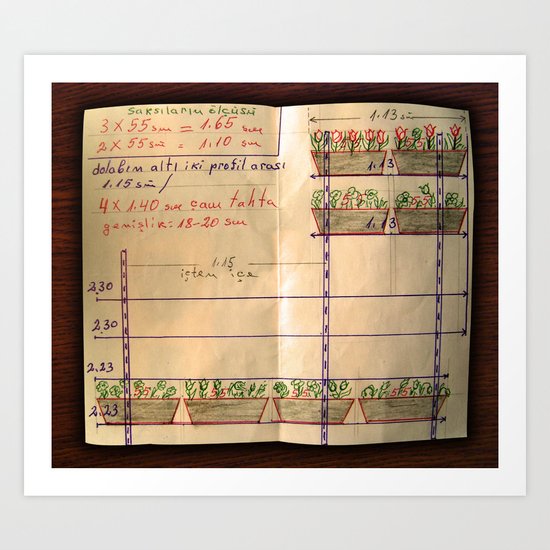 saksıların ölçüsü
3 x 55 sm = 1.65 sm
2 x 55 sm = 1.10 sm
dolabın altı iki profil arası
1.15 sm
4 x 1.40 sm çam tahta
genişlik = 18-20 sm
1.13 sm
1.13
55 55
1.13
1.15
içten içe
2.30
2.30
2.23
55 55 55 55
2.23